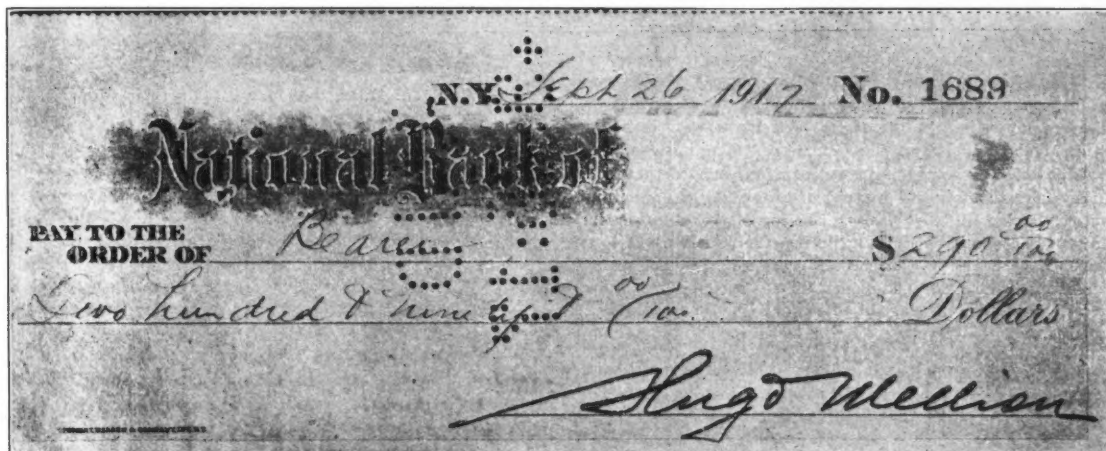 N.Y. Sept 26 1917 No. 1689
National Bank of
PAY TO THE
ORDER OF Bearer $290 00/100
Two hundred & ninety 00/100 Dollars
Hugo